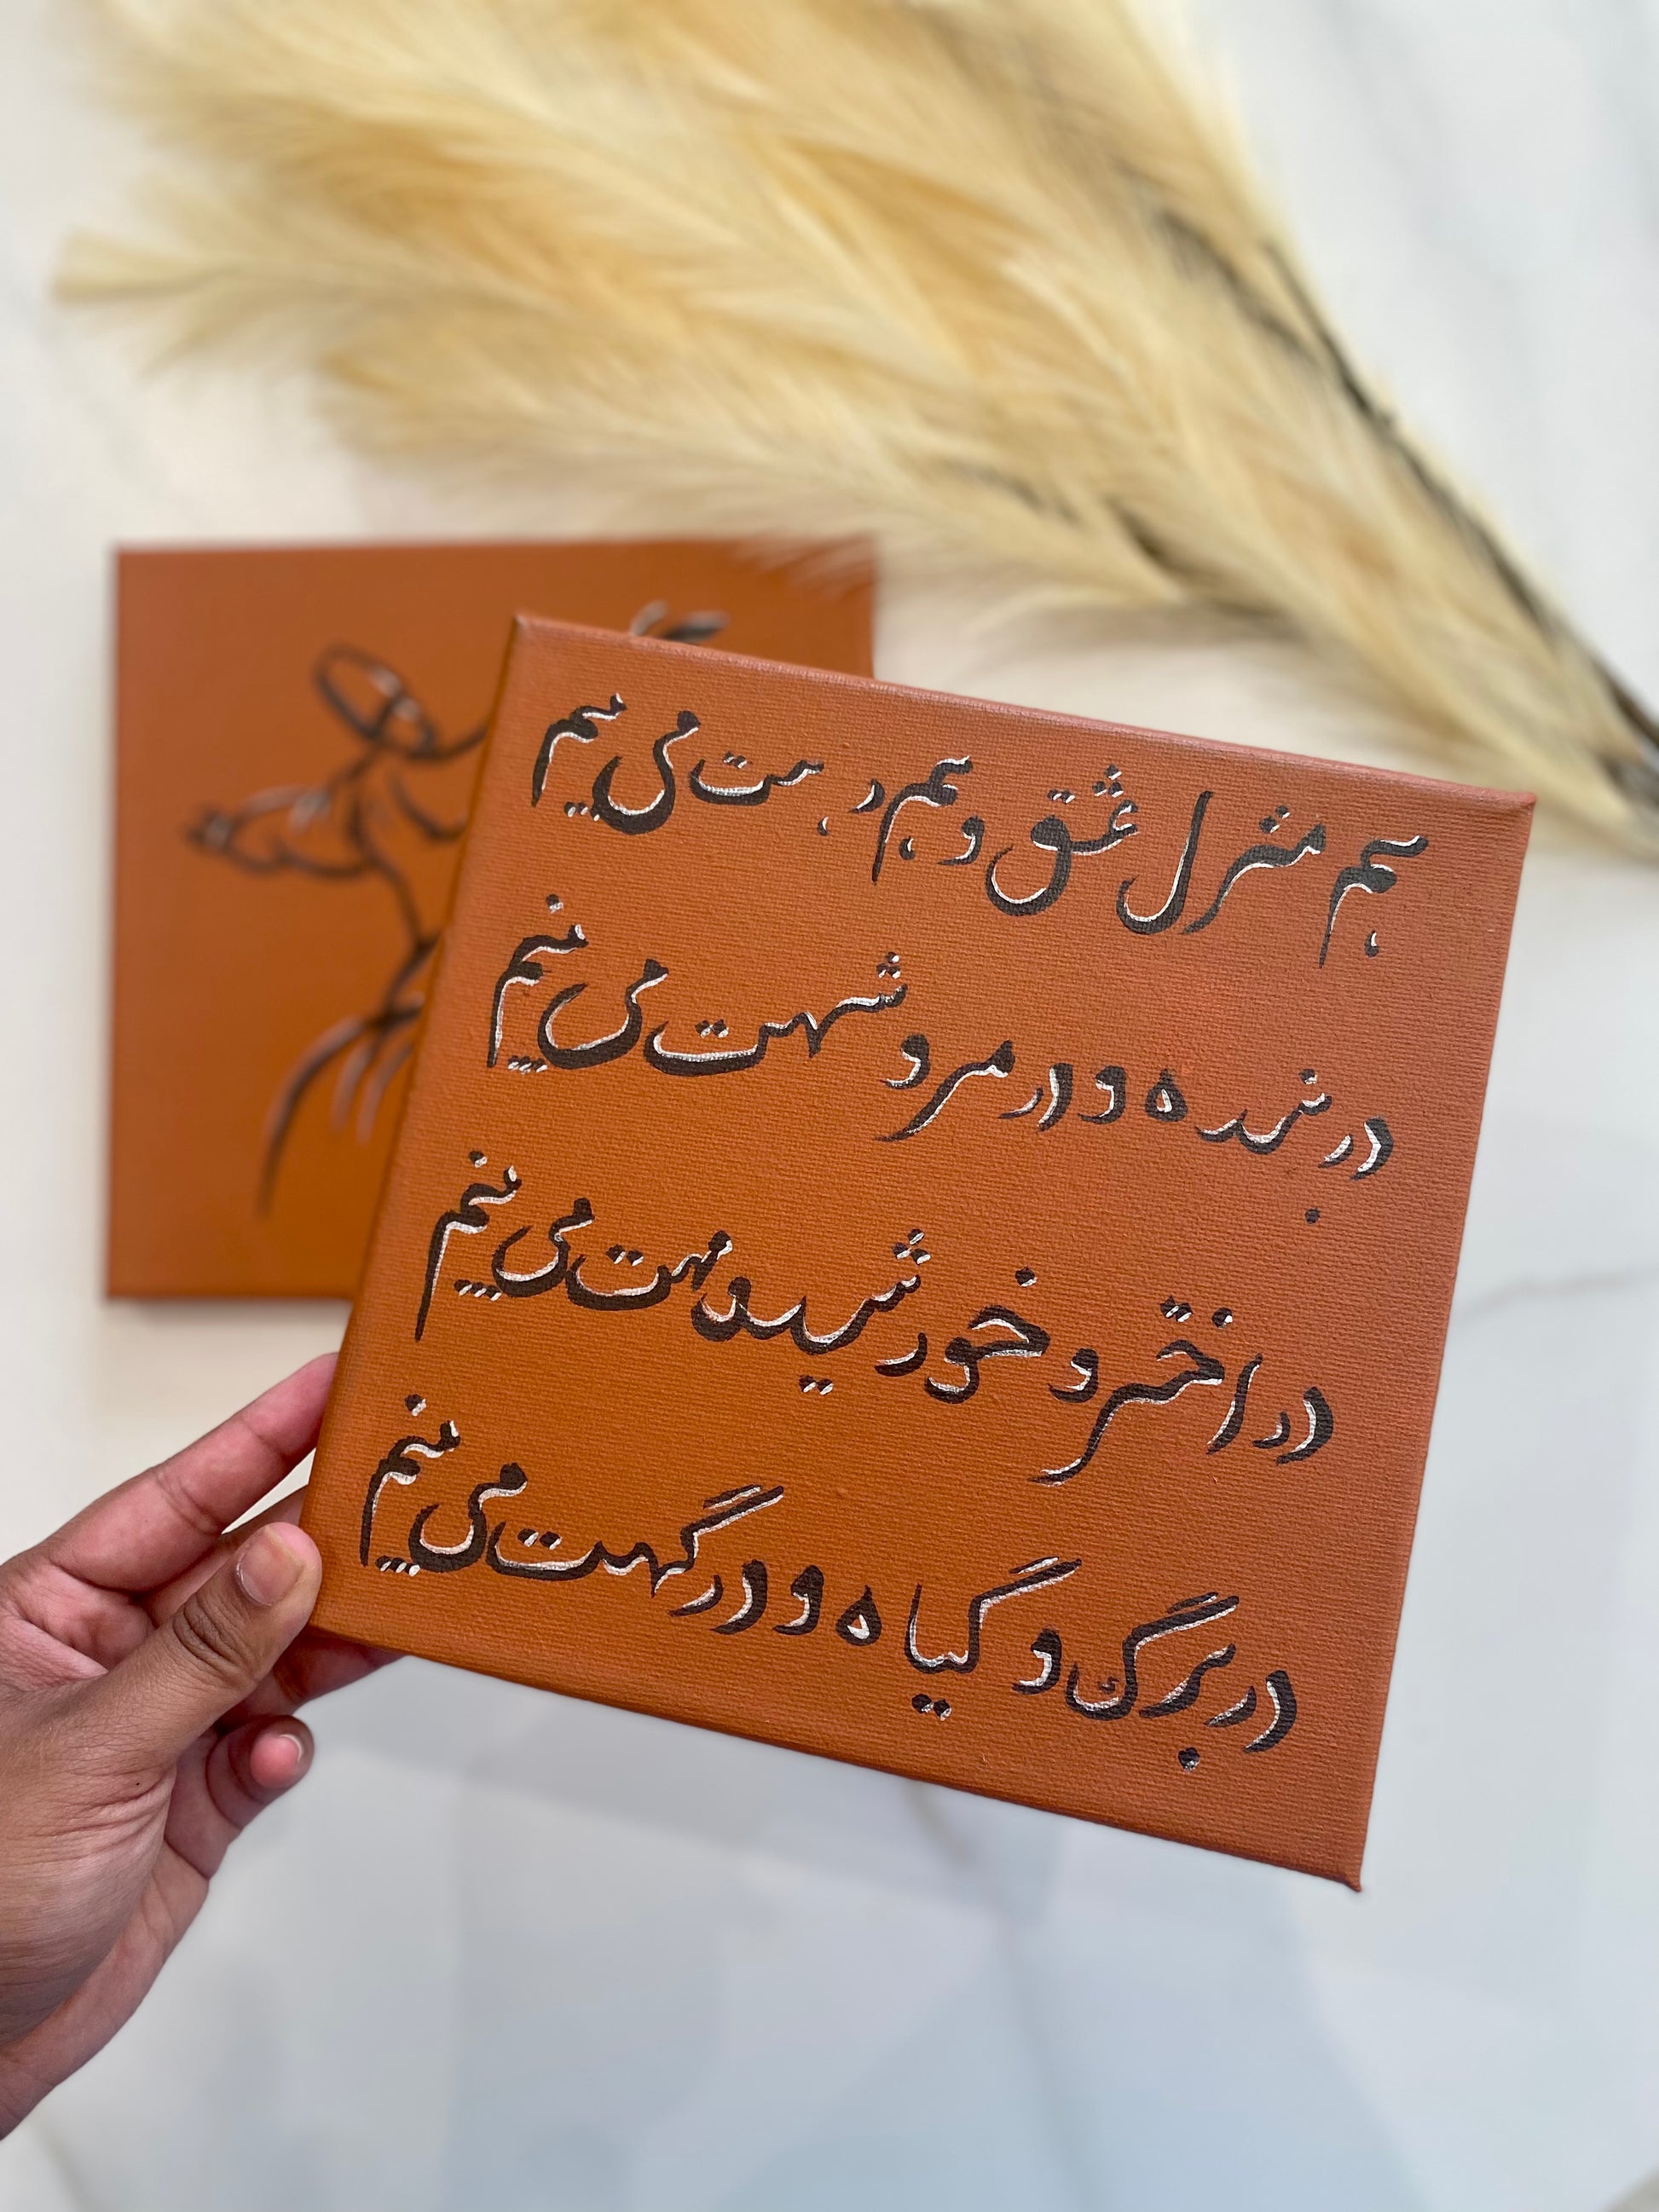 هم منزل عشق و هم رهت می بینم
در بنده و در مرو شهت می بینم
در اختر و خورشید و مهت می بینم
در برگ و گیاه و درگهت می بینم